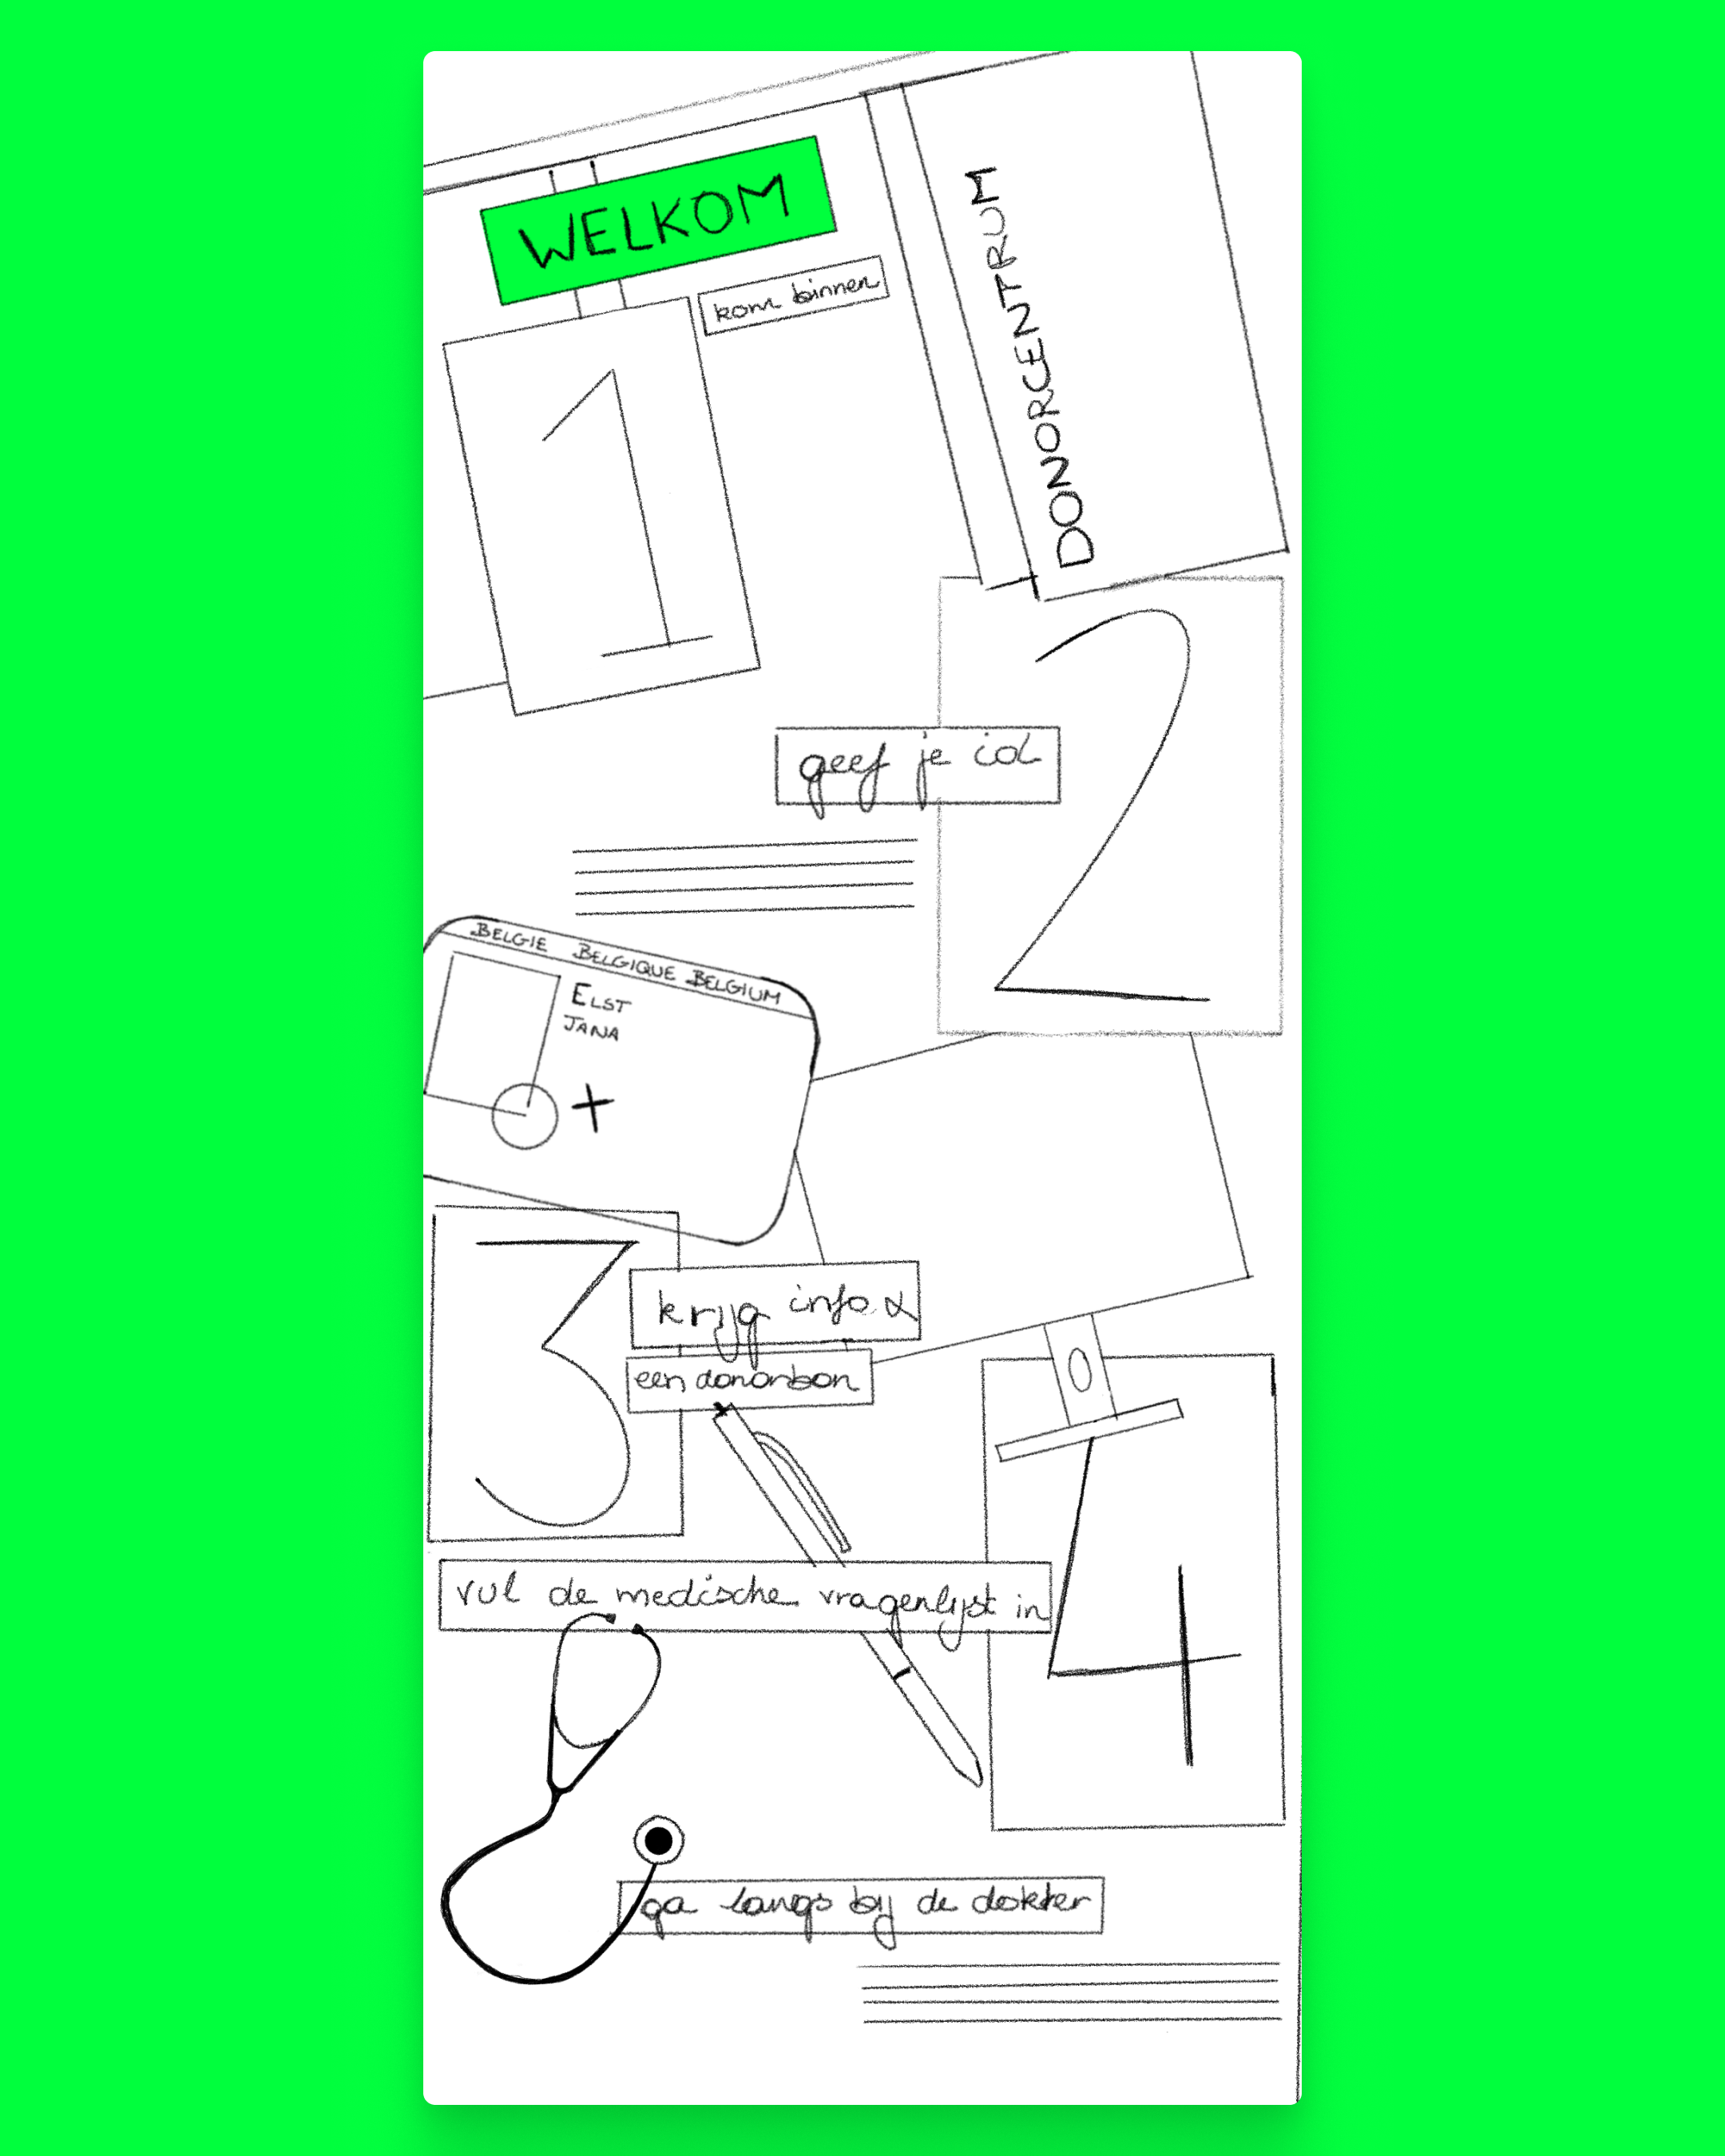 WELKOM
kom binnen
DONORCENTRUM
1
2
geef je id
BELGIE BELGIQUE BELGIUM
ELST
JANA
3
krijg info &
een donorbon
4
vul de medische vragenlijst in
ga langs bij de dokter